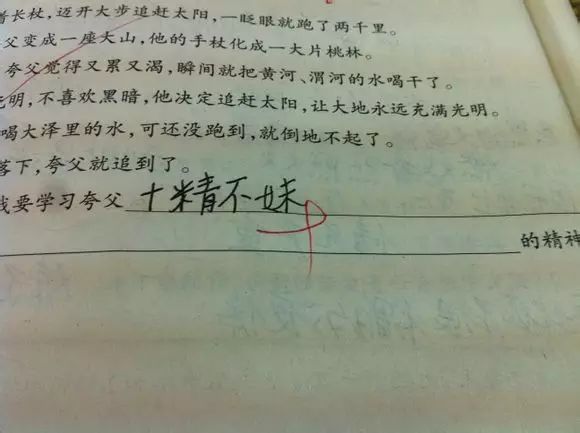 长杖，迈开大步追赶太阳，一眨眼就跑了两千里。
父变成一座大山，他的手杖化成一大片桃林。
夸父觉得又累又渴，瞬间就把黄河、渭河的水喝干了。
光明，不喜欢黑暗，他决定追赶太阳，让大地永远充满光明。
喝大泽里的水，可还没跑到，就倒地不起了。
落下，夸父就追到了。
我要学习夸父十精不妹
的精神